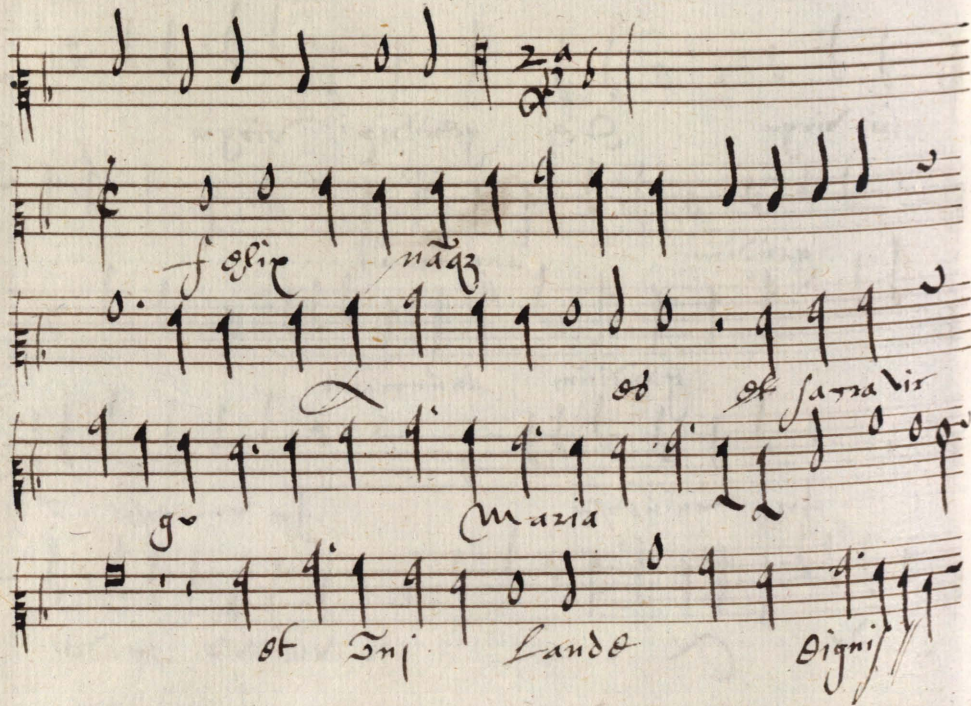 2a p̱s
felix nāqȝ
es et sacra vir
go Maria
et oṁni laude digniſſ